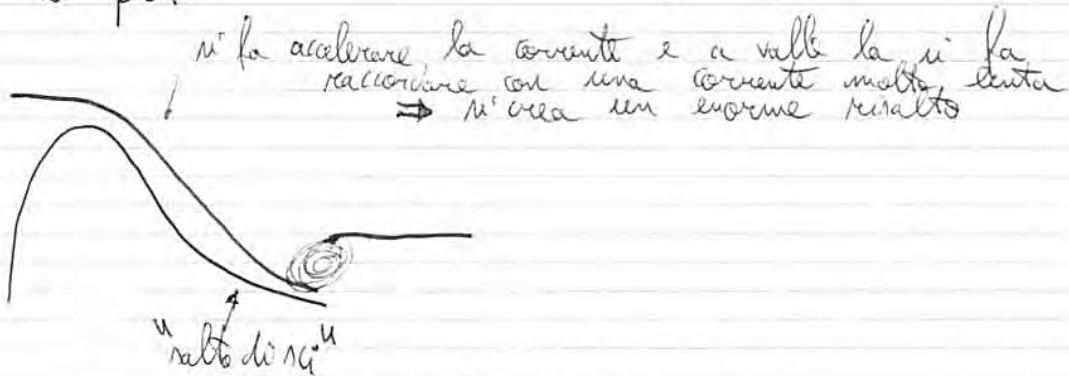 si fa accelerare la corrente e a valle la si fa
raccordare con una corrente molto lenta
⇒ si crea un enorme risalto
"salto di sci"